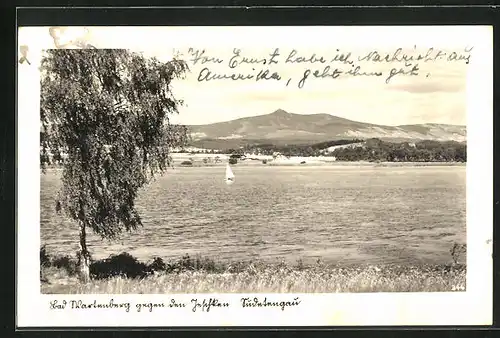 Von Ernst habe ich Nachricht aus
Amerika, geht ihm gut.
Bad Wartenberg gegen den Jeschken Sudetengau